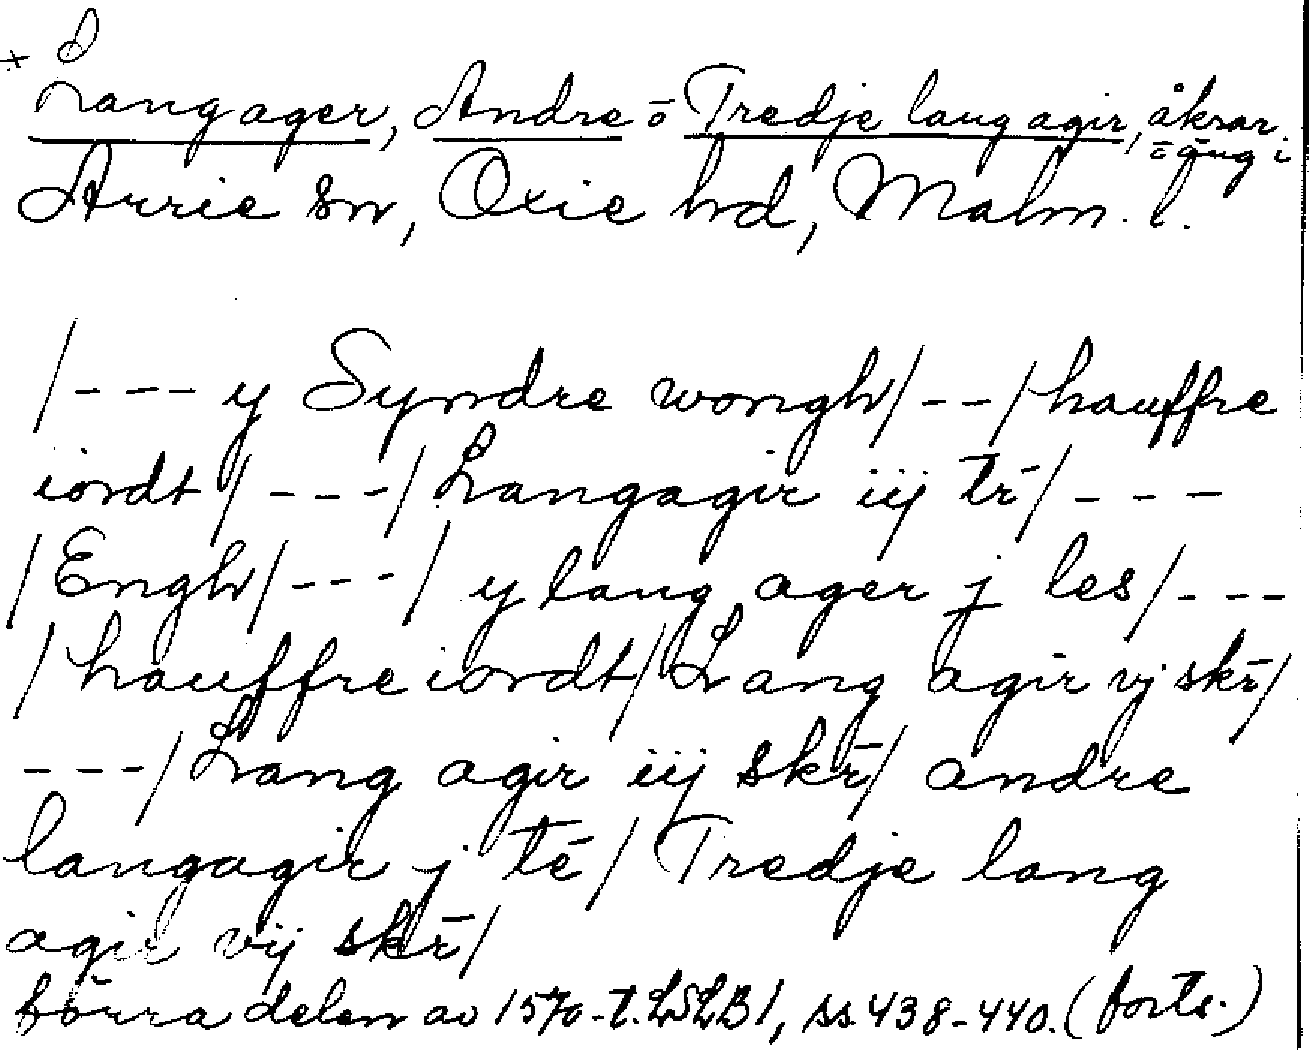 Langager, Andre o Tredje langagir, åkrar
o äng i
Arrie sn, Oxie hd, Malm. l.
/--- y Syndre wongh/--/houffre
iordt/---/Langagir iij tr/---
/Engh/---/ y lang ager j les/---
/houffre iordt/Lang agir vj skr/
---/Lang agir iij skr/ andre
langagir j te/ Tredje lang
agir vij skr/
förra delen av 1570-t. LSLB1, ss. 438-440. (forts.)